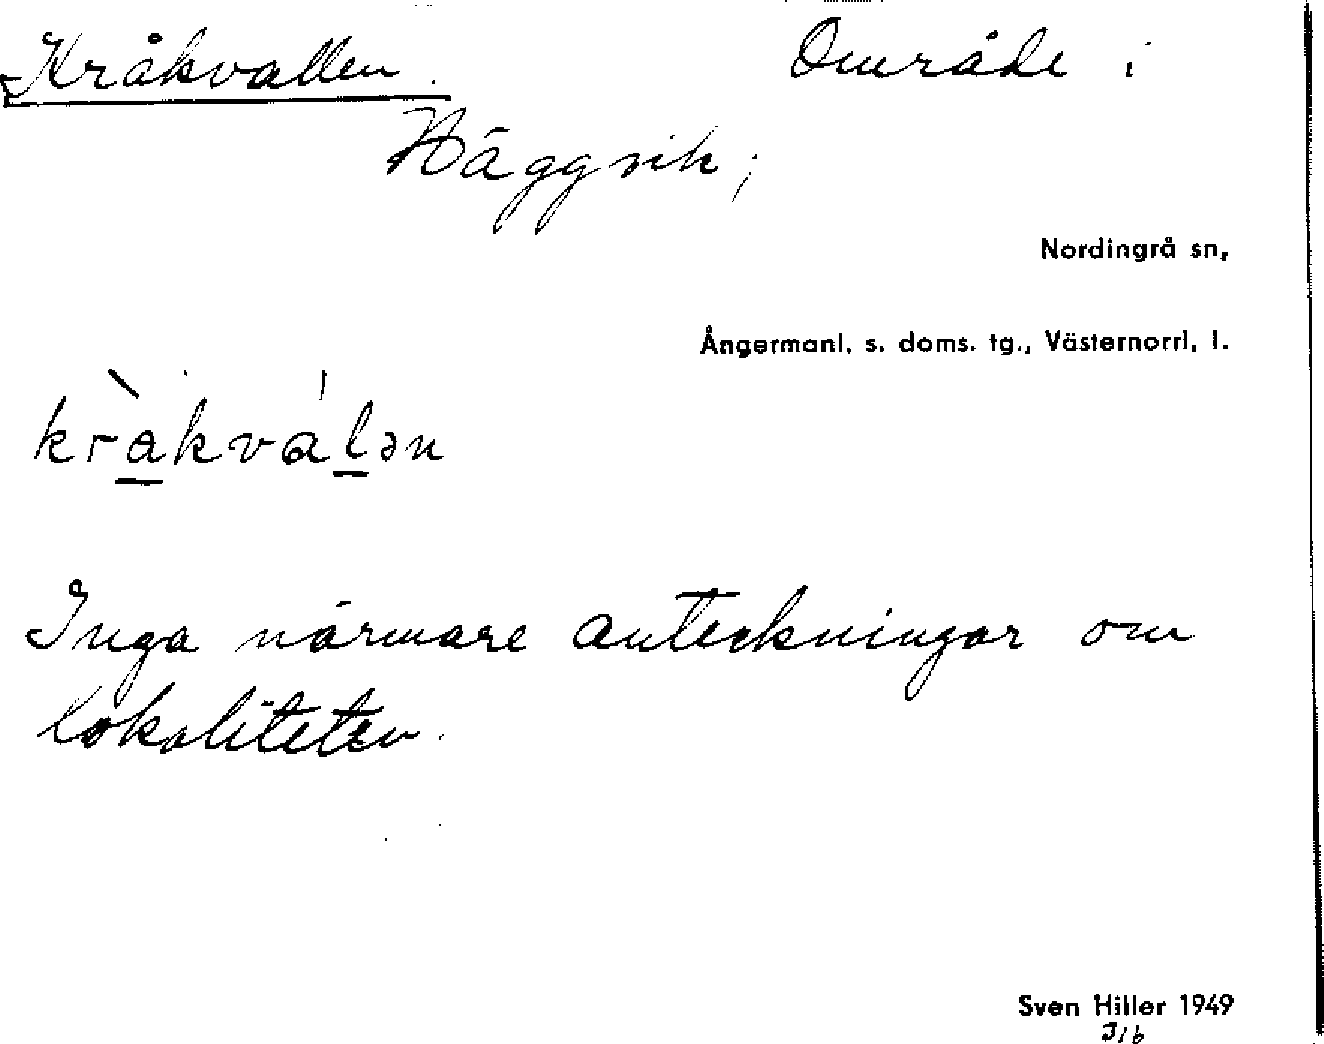 Kråkvallen. Område i
Häggvik;
Nordingrå sn,
Ångermanl. s. doms. tg., Västernorrl. l.
kràkválən
Inga närmare anteckningar om
lokaliteten.
Sven Hiller 1949